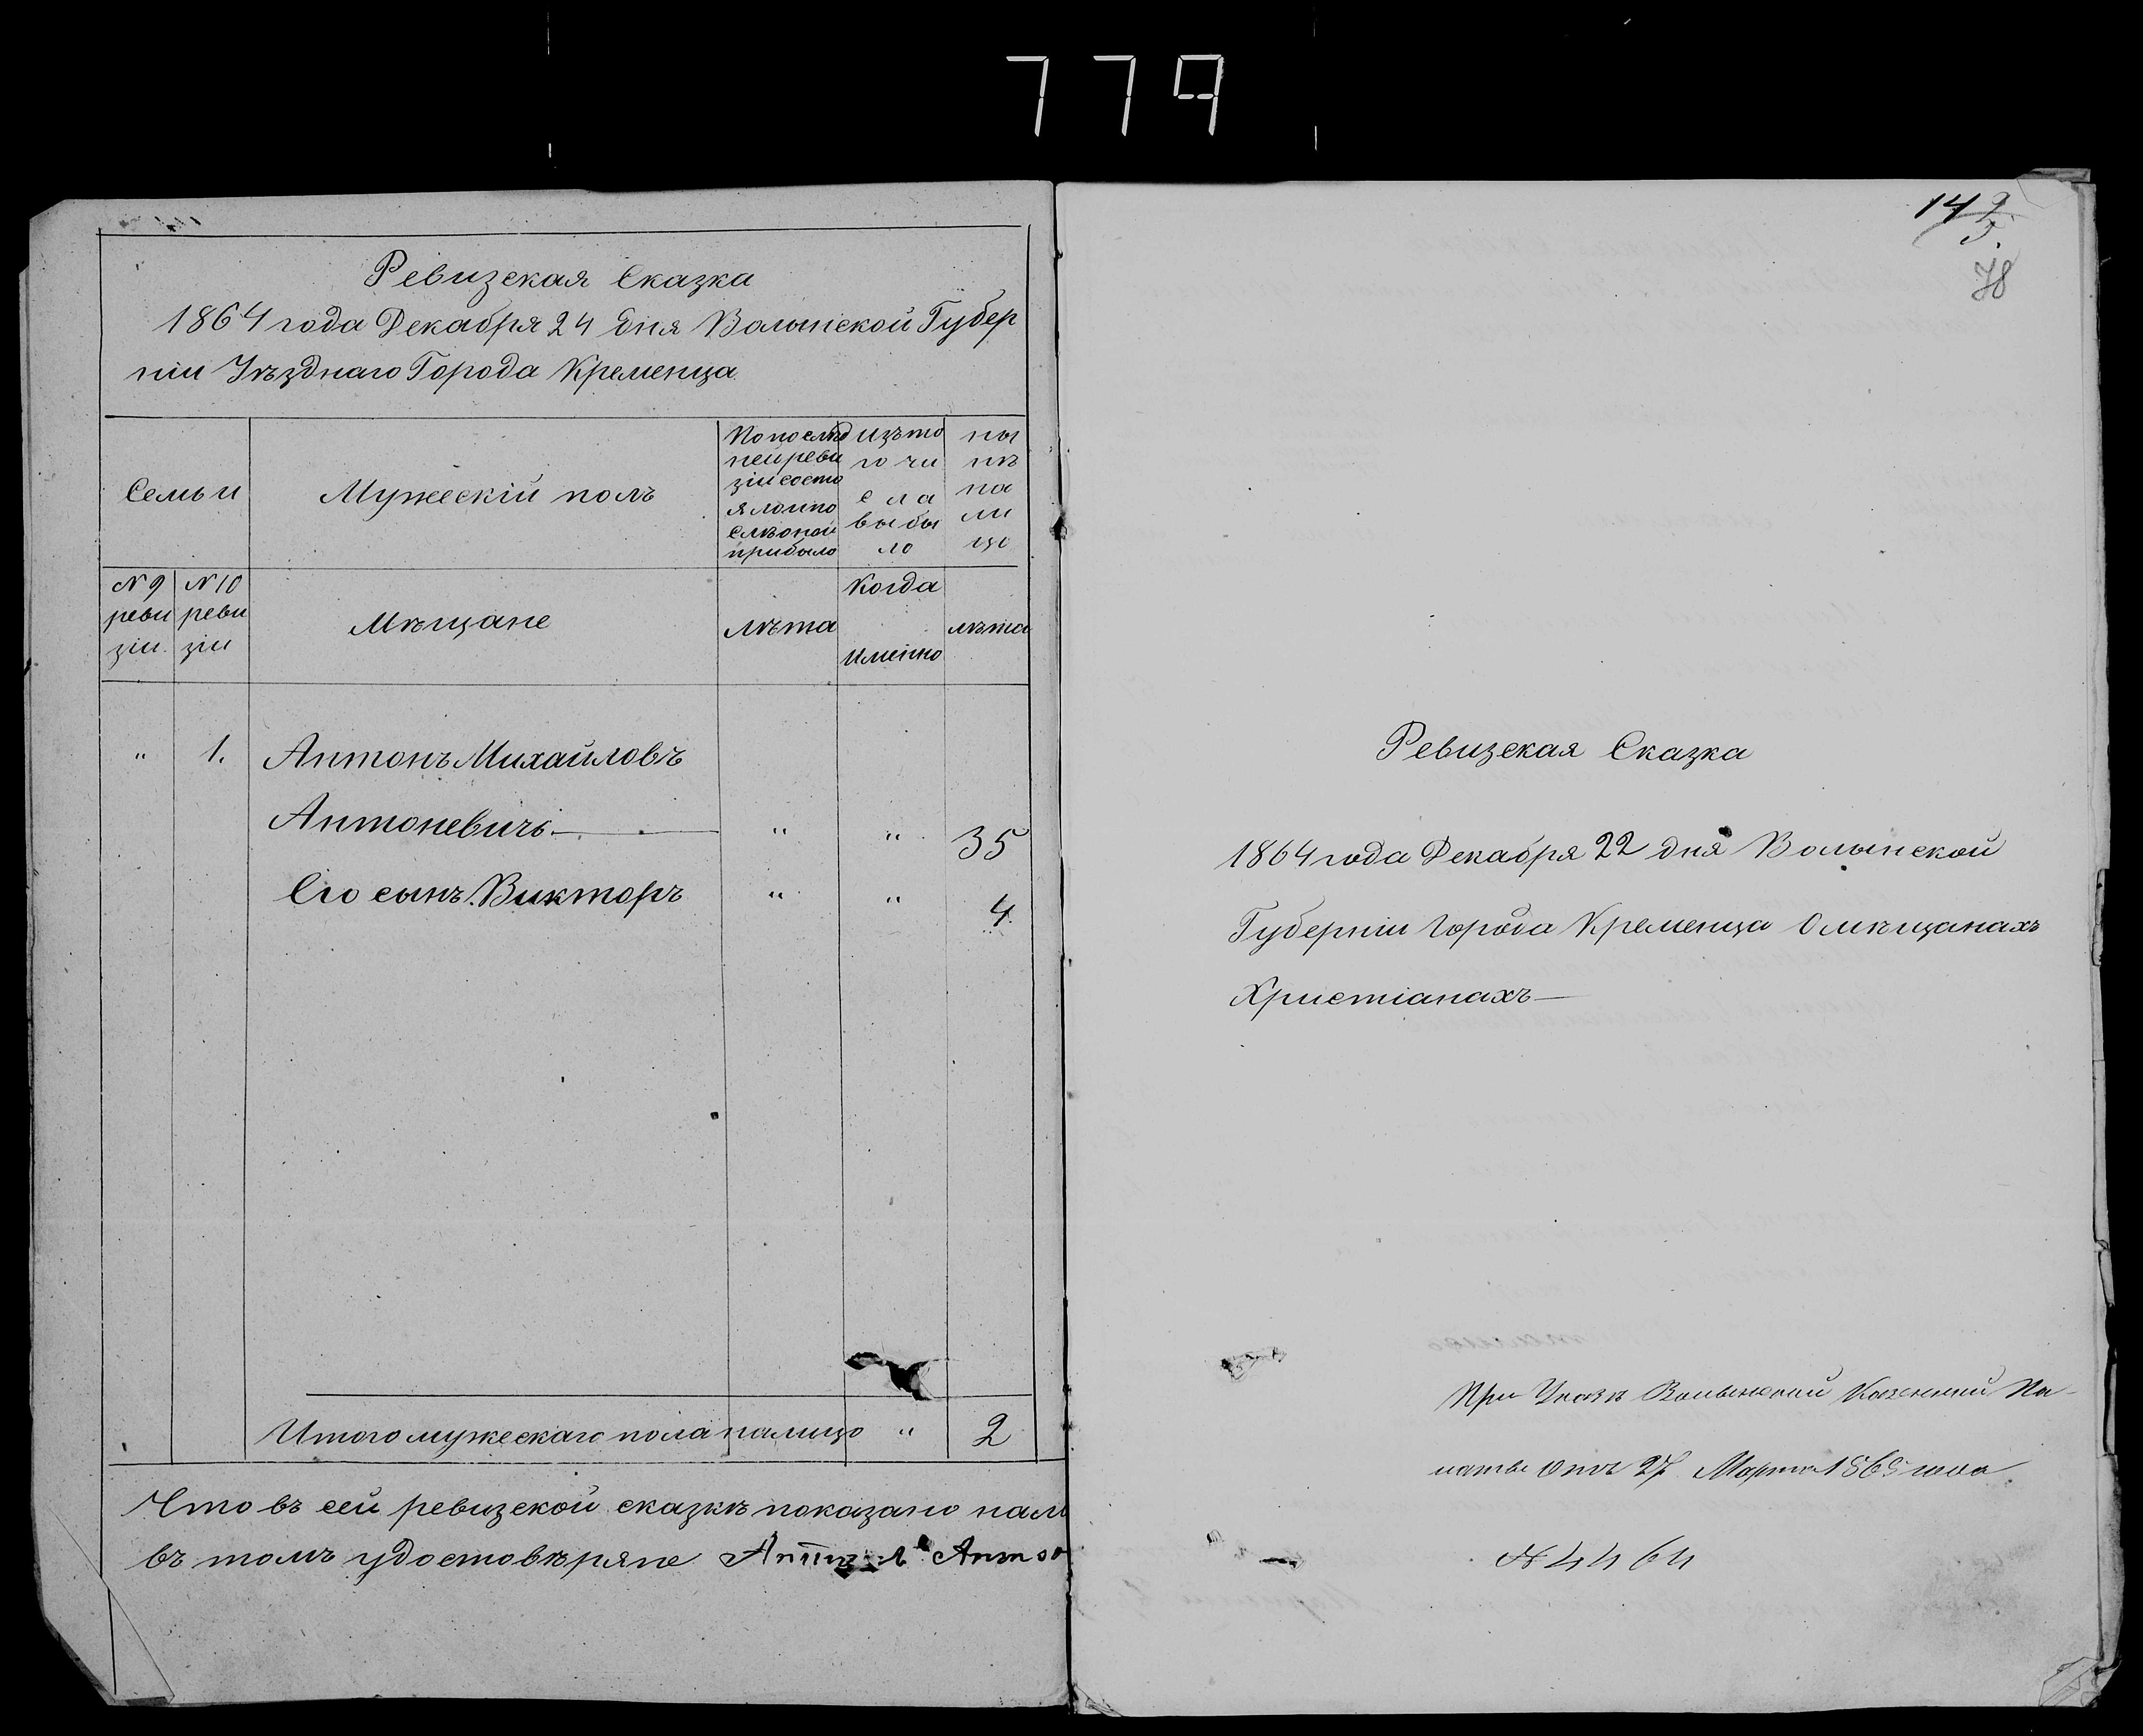 779
Ревизская Сказка
1864 года Декабря 24 дня Волынской Губер
ніи Уѣзднаго Города Кременца
Семьи
Мужескій полъ
По послѣд
ней реви
зіи состо
яло и по
слѣ оной
прибыло
Изъ то
го чи
сла
выбы
ло
Ны
нѣ
на
ли
цо
N 9
реви
зіи.
N 10
реви
зіи
Мѣщане
лѣта
Когда
Именно
лѣта
" 1. Антонъ Михайловъ
Антоневичъ " " 35
Его сынъ Викторъ " " 4.
Итого мужескаго пола налицо " 2
Что въ сей ревизской сказкѣ показано нали
въ томъ удостовѣряне Антон
142
5.
78
Ревизская Сказка
1864 года Декабря 22 дня Волынской
Губерніи города Кременца О мѣщанахъ
Христіанахъ
При Указѣ Волынской Казенной Па-
латы отъ 27 Марта 1865 года.
N 4464